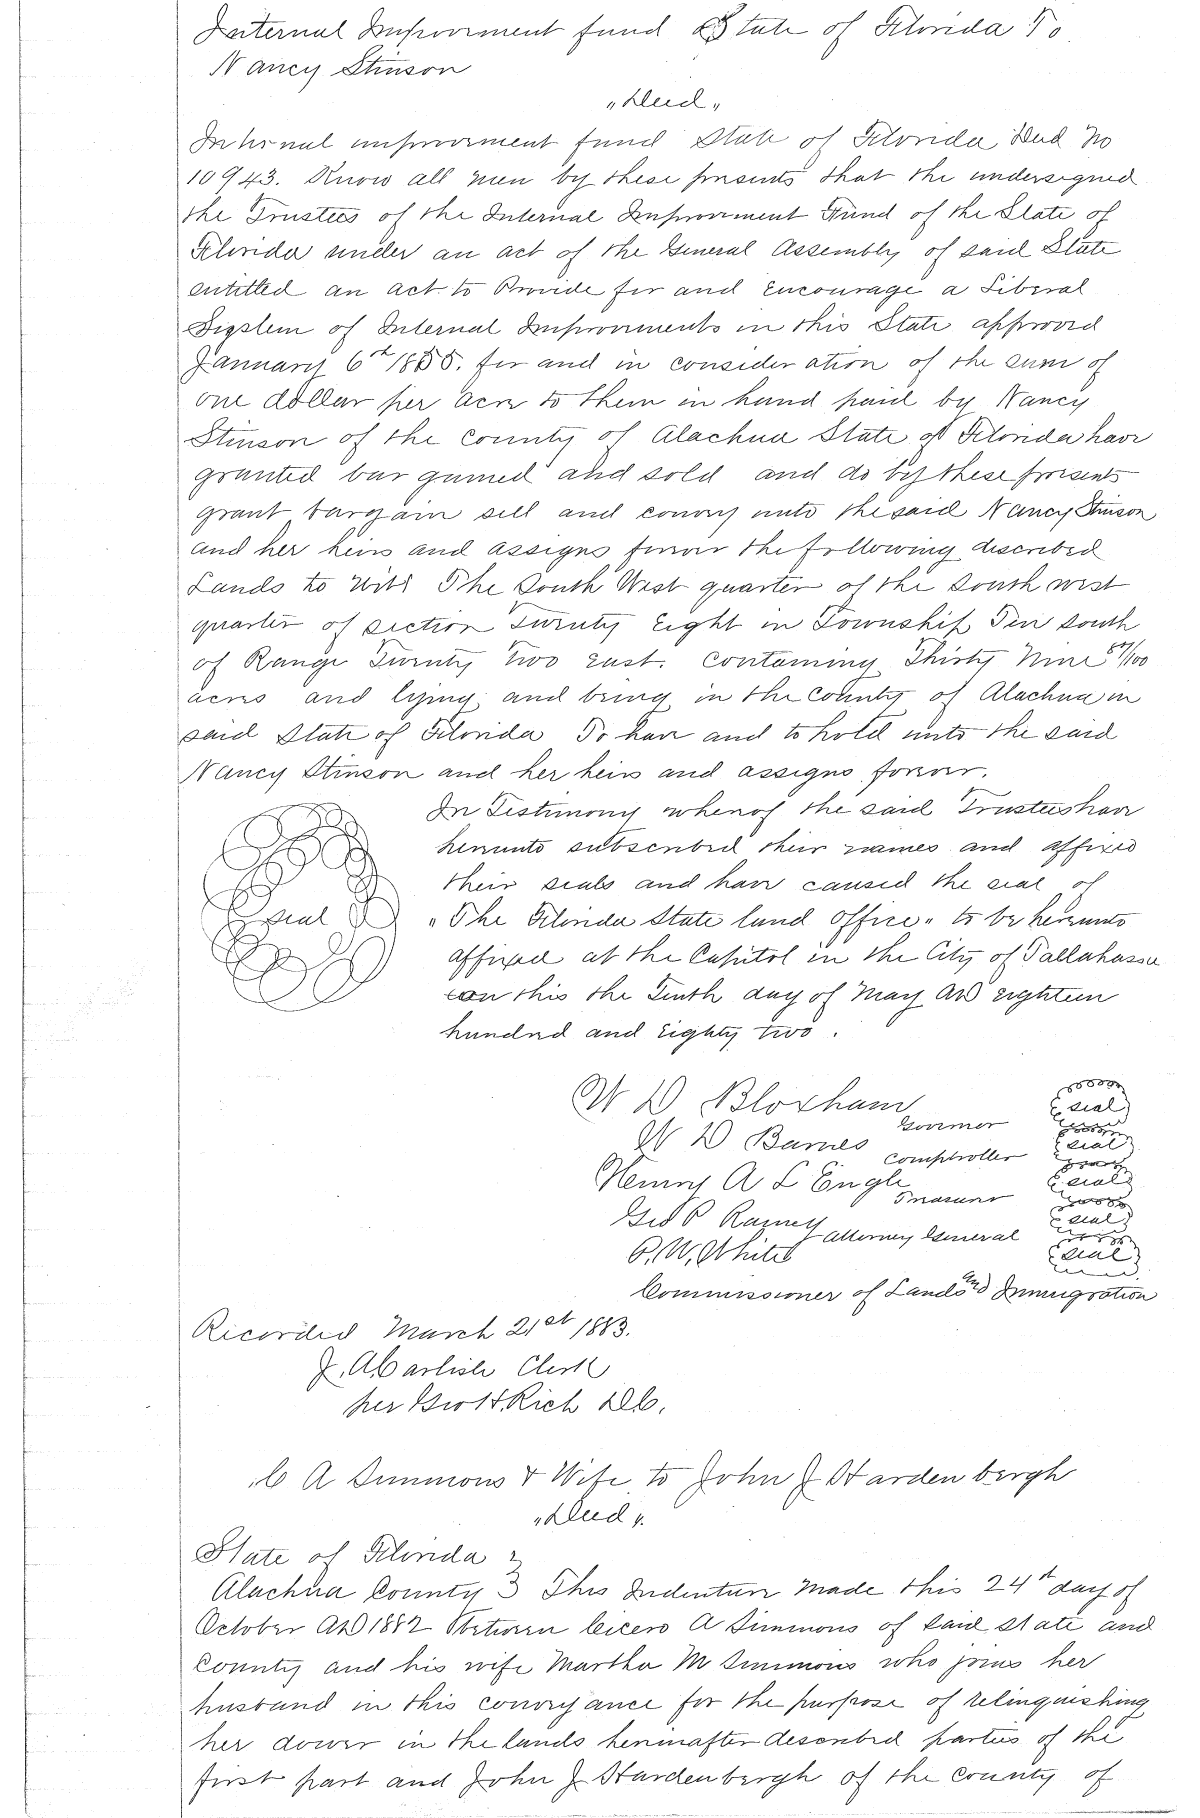 Internal Improvement fund State of Florida To
Nancy Stinson
"Deed"
Internal improvement fund State of Florida Deed No
10943. Know all men by these presents that the undersigned
the Trustees of the Internal Improvement Fund of the State of
Florida under an act of the General Assembly of said State
entitled an act to Provide for and Encourage a Liberal
System of Internal Improvements in this State approved
January 6th 1855. for and in consideration of the sum of
one dollar per acre to them in hand paid by Nancy
Stinson of the county of Alachua State of Florida have
granted bargained and sold and do by these presents
grant bargain sell and convey unto the said Nancy Stinson
and her heirs and assigns forever the following described
Lands to wit The South West quarter of the South west
quarter of section Twenty Eight in Township Ten south
of Range Twenty two east. Containing Thirty Nine /100
acres and lying and being in the County of Alachua in
said State of Florida To have and to hold unto the said
Nancy Stinson and her heirs and assigns forever.
In Testimony whereof the said Trustees have
hereunto subscribed their names and affixed
their seals and have caused the seal of
seal "The Florida State land office" to be hereunto
affixed at the Capitol in the City of Tallahassee
on this the Tenth day of May AD eighteen
hundred and Eighty two.
W D Bloxham Governor seal
W D Barnes Comptroller seal
Henry A L Engle Treasurer seal
Geo P Raney attorney General seal
P. W. White seal
Commissioner of Lands and Immigration
Recorded March 21st 1883.
J. A Carlisle Clerk
per Geo H. Rich DC.
C A Simmons & Wife to John J Hardenbergh
"Deed".
State of Florida
Alachua County } This Indenture Made this 24th day of
October AD 1882 Between Cicero A Simmons of said state and
County and his wife Martha M Simmons who joins her
husband in this conveyance for the purpose of relinquishing
her dower in the lands hereinafter described parties of the
first part and John J Hardenbergh of the County of